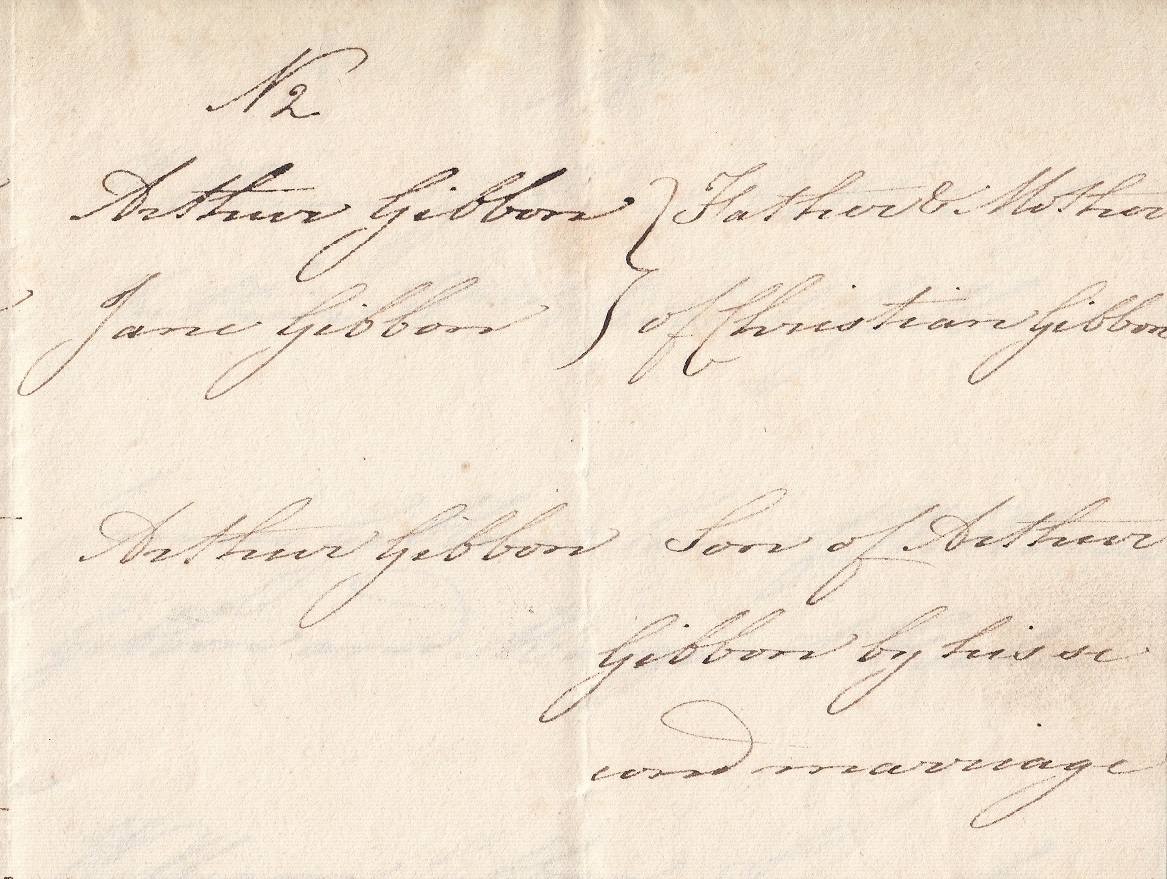 N 2
Arthur Gibbon } Father & Mother
Jane Gibbon } of Christian Gibbon
Arthur Gibbon Son of Arthur
Gibbon by his se
cond marriage